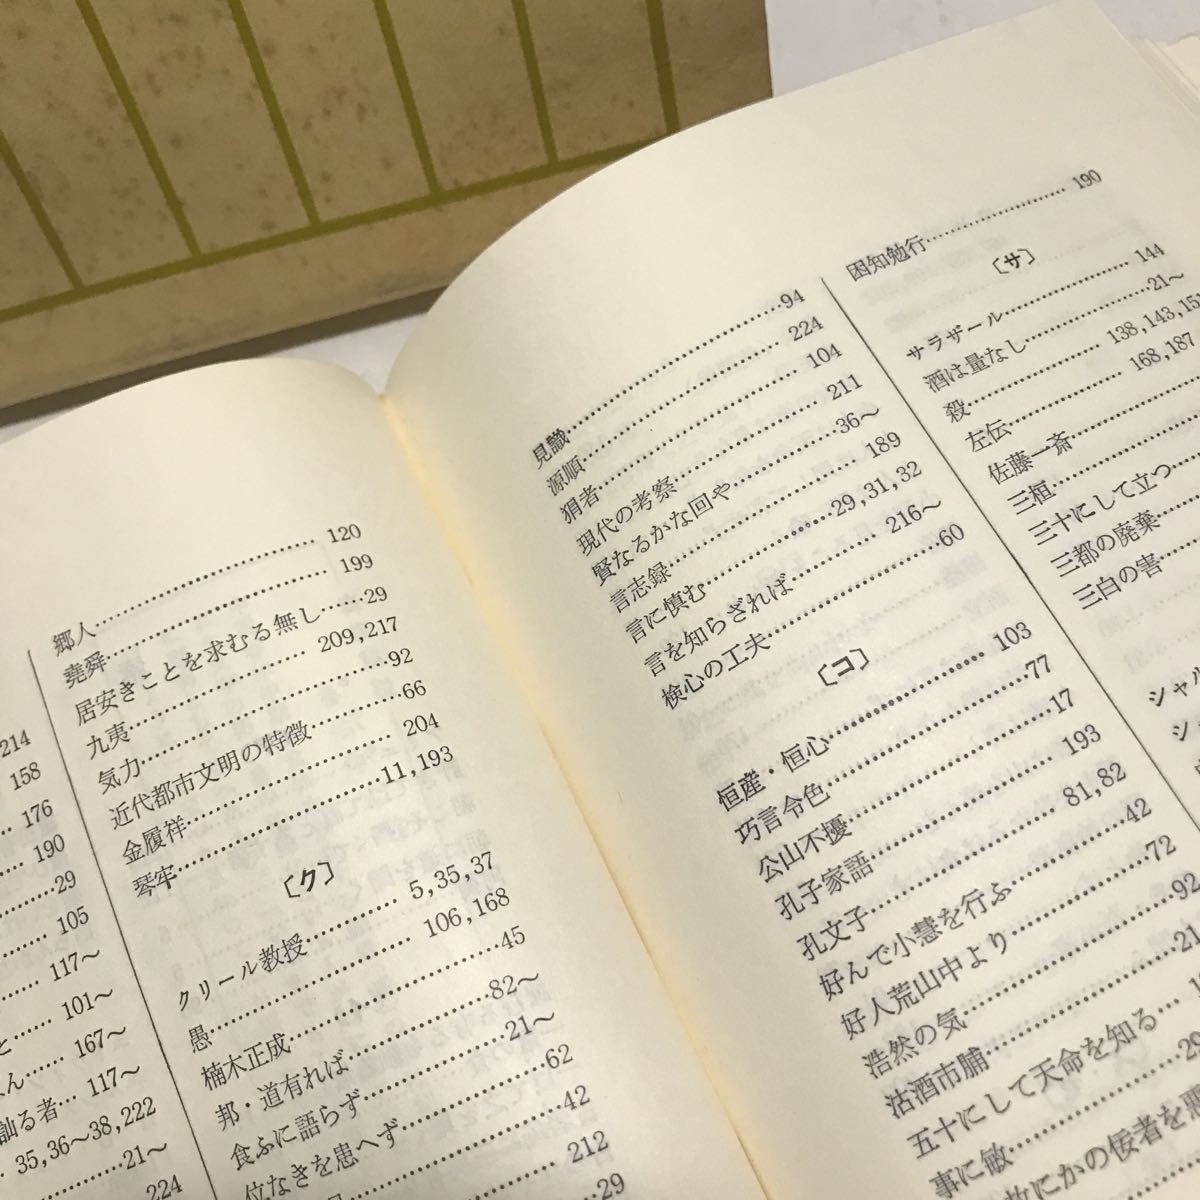 214
158
176
190
29
105
117〜
101〜
と…… 167〜
117〜
訕る者… 117〜
35,36〜38,222
21〜
224
郷人…… 120
堯舜…… 199
居安きことを求むる無し……29
九夷…… 209,217
気力……92
近代都市文明の特徴……66
金履祥…… 204
琴牢……11,193
〔ク〕
クリール教授…… 5,35,37
愚…… 106,168
楠木正成……45
邦・道有れば……82〜
食ふに語らず……21〜
位なきを患へず……62
42
212
29
見識……94
源順…… 224
狷者…… 104
現代の考察…… 211
賢なるかな回や……36〜
言志録…… 189
言に慎む……29,31,32
言を知らざれば…… 216〜
検心の工夫……60
〔コ〕
恒産・恒心…… 103
巧言令色……77
公山不擾……17
孔子家語…… 193
孔文子…… 81,82
好んで小慧を行ふ……42
好人荒山中より……72
浩然の気……92
沽酒市脯……21
五十にして天命を知る…
事に敏……29
にかの佞者を悪
困知勉行…… 190
〔サ〕
サラザール…… 144
酒は量なし……21〜
殺…… 138,143,15
左伝…… 168,187
佐藤一斎
三桓
三十にして立つ
三都の廃棄
三白の害
シャル
シ